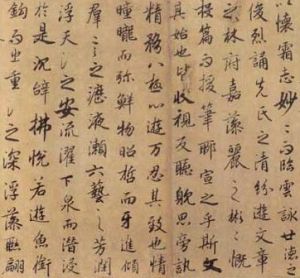 懷志妙々而臨雲詠世德之
俊烈誦先民之清芬遊文章
之林府嘉藻麗之彬々慨
投篇而援筆聊宣之乎斯文
其始也皆收視反聽耽思傍訊
精務八極心遊万忍其致也情
曈曨而弥鮮物昭晢而互進
群言之瀝液漱六藝之芳潤
浮天淵之安流濯下泉而潛浸
於是沉辭怫悅若遊魚銜
鉤而出重淵之深浮藻聯翩